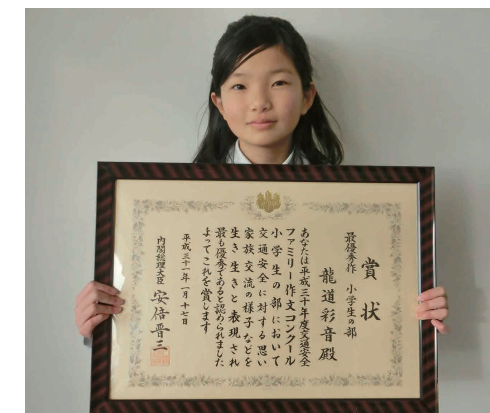 賞状
最優秀作 小学生の部
龍道彩音殿
あなたは平成三十年度交通安全
ファミリー作文コンクール
小学生の部において
交通安全に対する思い
家族交流の様子などを
生き生きと表現され
最も優秀であると認められました
よってこれを賞します
平成三十一年一月十七日
内閣総理大臣 安倍晋三